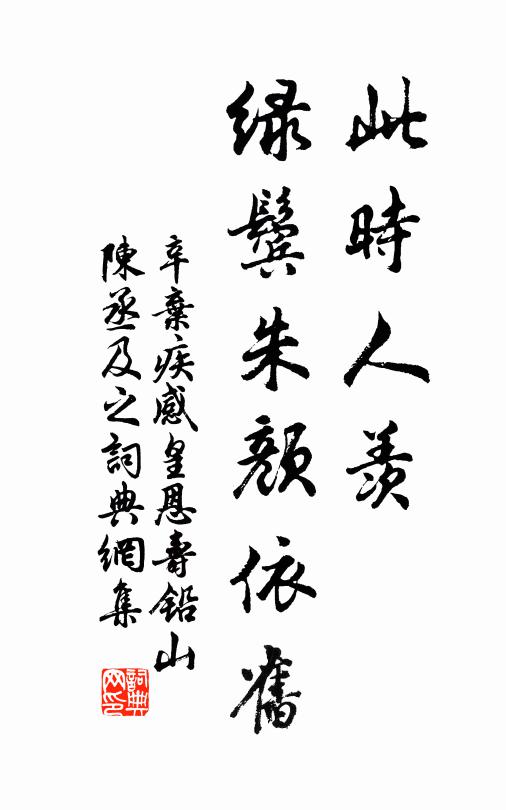 此時人羨
綠鬢朱顏依舊
辛棄疾感皇恩壽鉛山
陳丞及之詞典網集
詞典网印